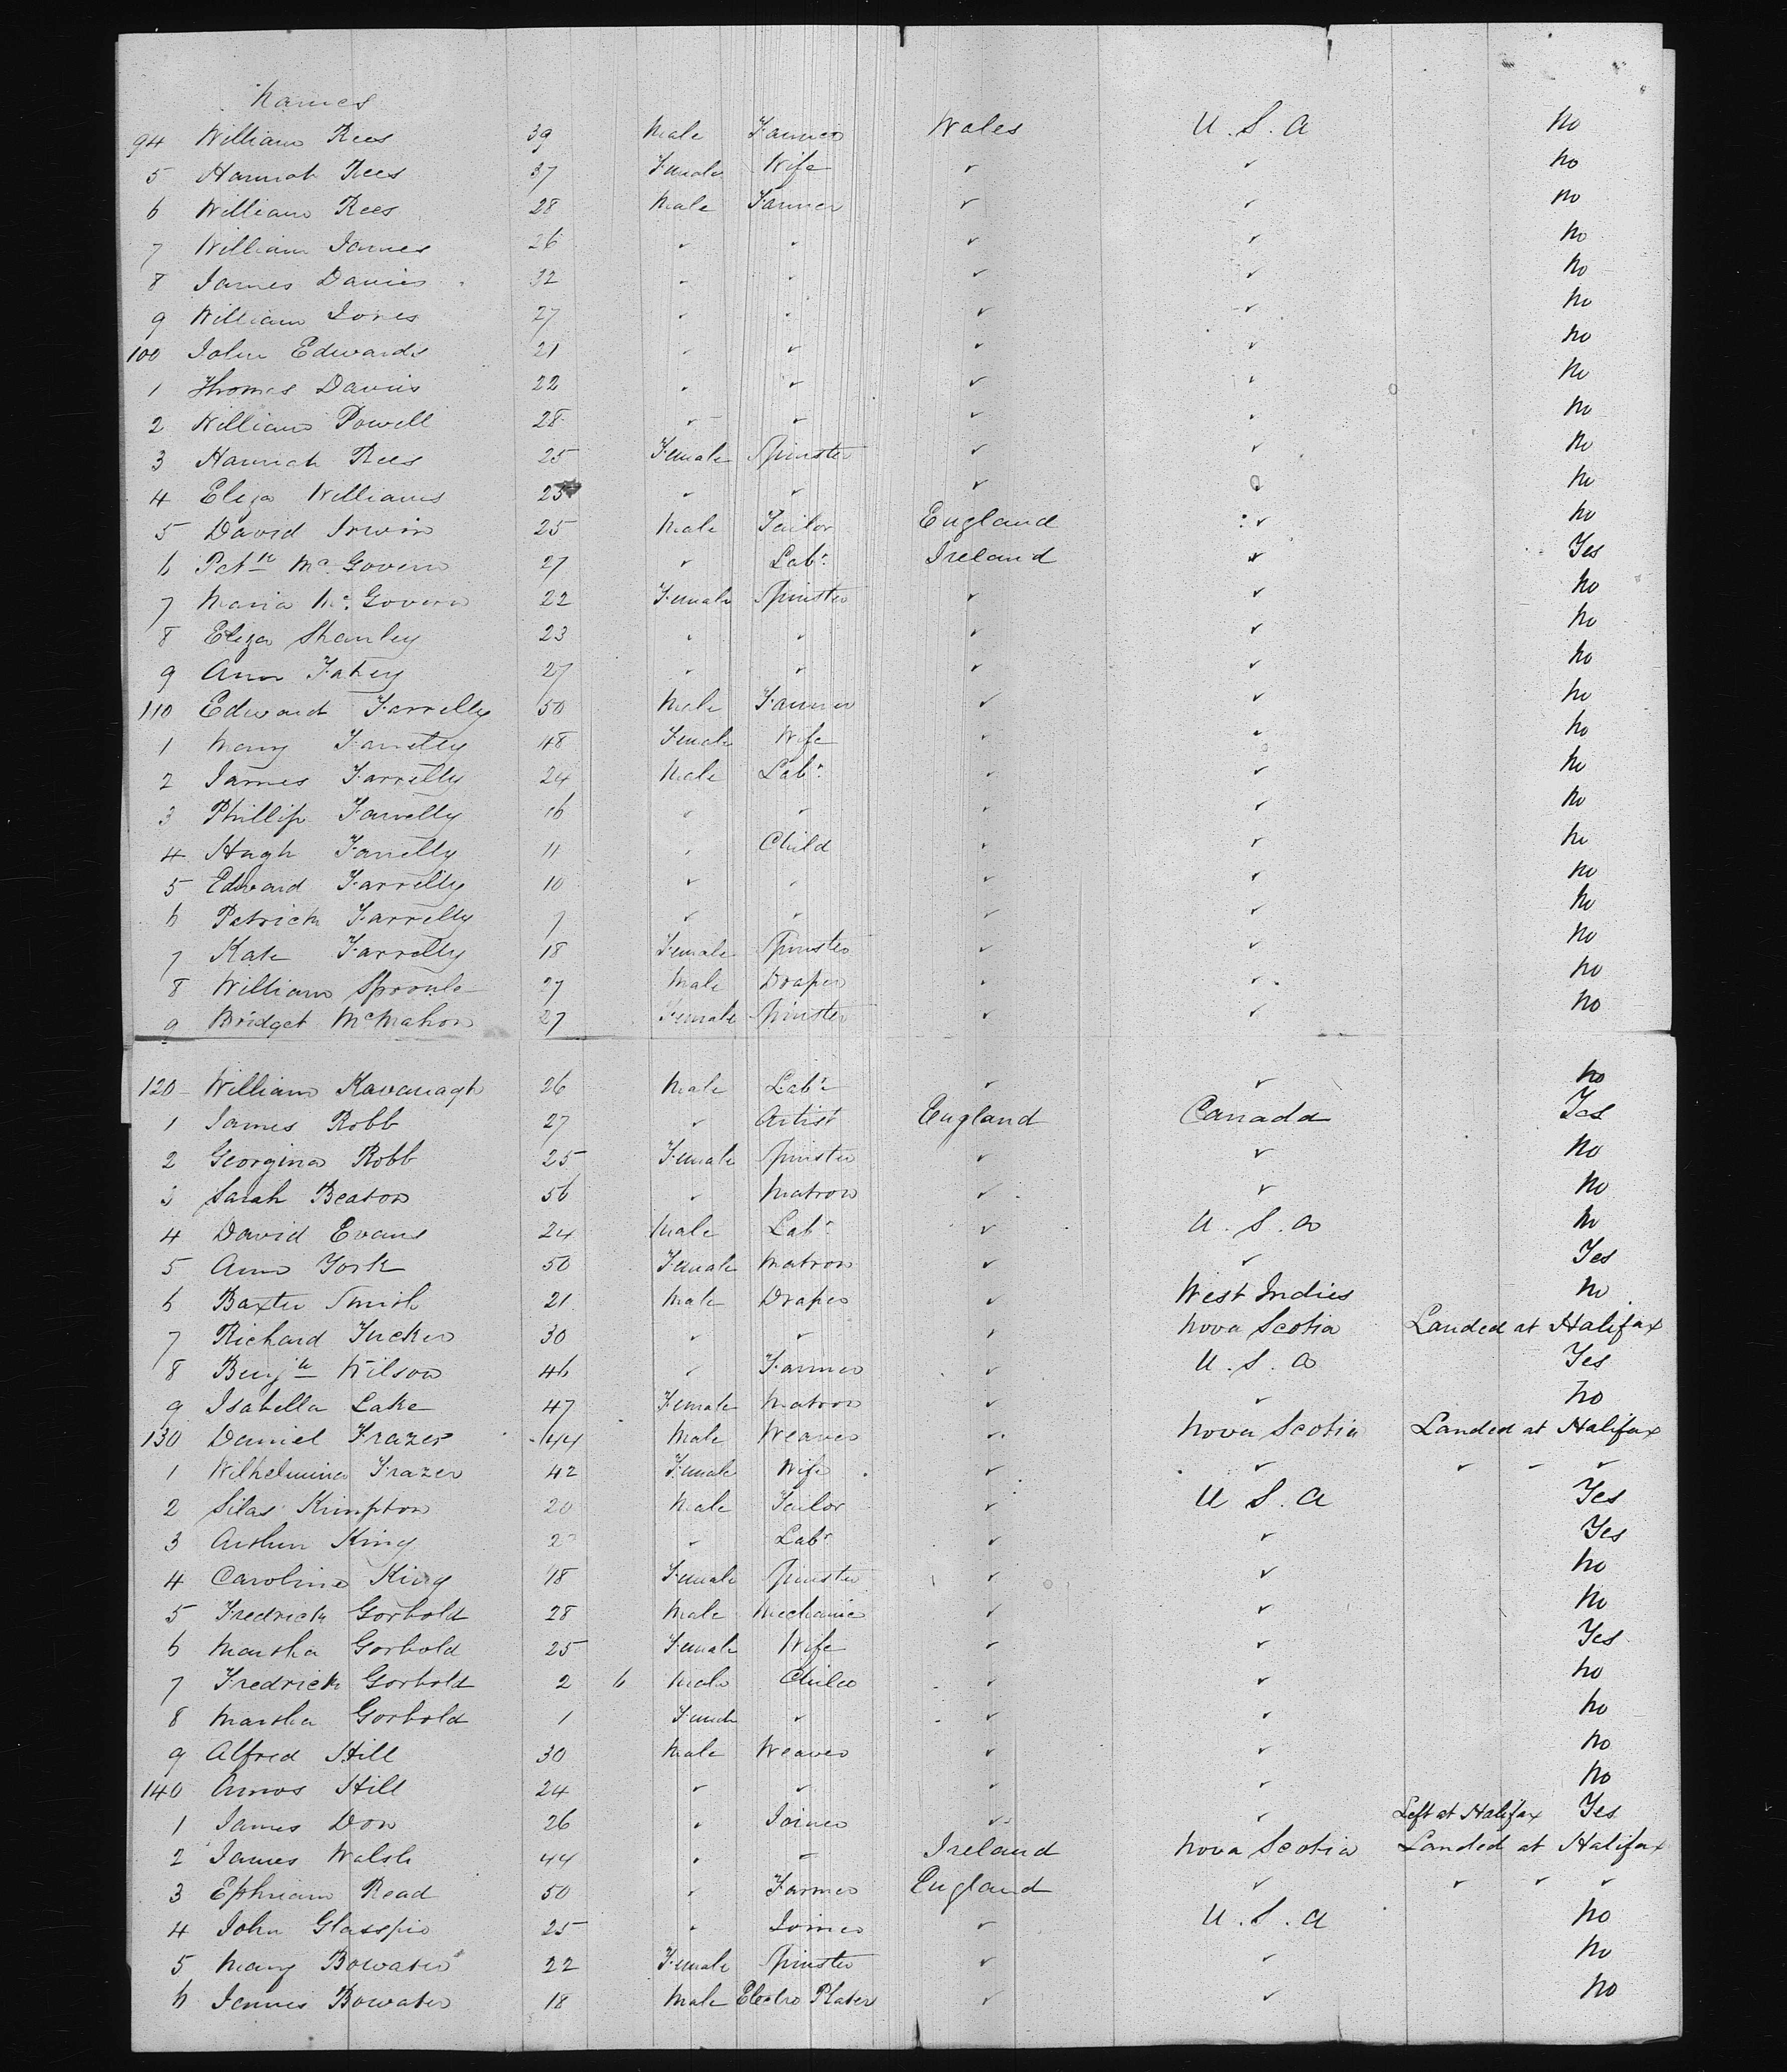 Names
94 William Rees 39 Male Farmer Wales U.S.A No
5 Hannah Rees 37 Female Wife ✓ ✓ No
6 William Rees 28 Male Farmer ✓ ✓ No
7 William James 26 ✓ ✓ ✓ ✓ No
8 James Davies 32 ✓ ✓ ✓ ✓ No
9 William Jones 27 ✓ ✓ ✓ ✓ No
100 John Edwards 21 ✓ ✓ ✓ ✓ No
1 Thomas Davies 22 ✓ ✓ ✓ ✓ No
2 William Powell 28 ✓ ✓ ✓ ✓ No
3 Hannah Rees 25 Female Spinster ✓ ✓ No
4 Eliza Williams 25 ✓ ✓ ✓ ✓ No
5 David Irwin 25 Male Tailor England ✓ No
6 Patk McGovern 27 ✓ Labr Ireland ✓ Yes
7 Maria McGovern 22 Female Spinster ✓ ✓ No
8 Eliza Shanley 23 ✓ ✓ ✓ ✓ No
9 Ann Fahey 27 ✓ ✓ ✓ ✓ No
110 Edward Farrelly 50 Male Farmer ✓ ✓ No
1 Mary Farrelly 48 Female Wife ✓ ✓ No
2 James Farrelly 24 Male Labr ✓ ✓ No
3 Phillip Farrelly 16 ✓ ✓ ✓ ✓ No
4 Hugh Farrelly 11 ✓ Child ✓ ✓ No
5 Edward Farrelly 10 ✓ ✓ ✓ ✓ No
6 Patrick Farrelly 7 ✓ ✓ ✓ ✓ No
7 Kate Farrelly 18 Female Spinster ✓ ✓ No
8 William Sproule 27 Male Draper ✓ ✓ No
9 Bridget McMahon 27 Female Spinster ✓ ✓ No
120 William Kavanagh 26 Male Labr ✓ ✓ No
1 James Robb 27 ✓ Artist England Canada Yes
2 Georgina Robb 25 Female Spinster ✓ ✓ No
3 Sarah Beaton 56 ✓ Matron ✓ ✓ No
4 David Evans 24 Male Labr ✓ U.S.A No
5 Ann York 50 Female Matron ✓ ✓ Yes
6 Baxter Smith 21 Male Draper ✓ West Indies No
7 Richard Tucker 30 ✓ ✓ ✓ Nova Scotia Landed at Halifax
8 Benjn Wilson 46 ✓ Farmer ✓ U.S.A Yes
9 Isabella Lake 47 Female Matron ✓ ✓ No
130 Daniel Frazer 44 Male Weaver ✓ Nova Scotia Landed at Halifax
1 Wilhelmina Frazer 42 Female Wife ✓ ✓ ✓ ✓ ✓
2 Silas Kimpton 20 Male Tailor ✓ U S. A Yes
3 Arthur King ✓ Labr ✓ ✓ Yes
4 Caroline King 18 Female Spinster ✓ ✓ No
5 Fredrick Gorbold 28 Male Mechanic ✓ ✓ No
6 Martha Gorbold 25 Female Wife ✓ ✓ Yes
7 Fredrick Gorbold 2 6 Male Child ✓ ✓ No
8 Martha Gorbold 1 Female ✓ ✓ ✓ No
9 Alfred Hill 30 Male Weaver ✓ ✓ No
140 Amos Hill 24 ✓ ✓ ✓ ✓ No
1 James Don 26 ✓ Joiner ✓ ✓ Left at Halifax Yes
2 James Walsh 44 ✓ ✓ Ireland Nova Scotia Landed at Halifax
3 Ephriam Read 50 ✓ Farmer England ✓ ✓ ✓ ✓
4 John 25 ✓ Joiner ✓ U.S.A No
5 Mary Bowater 22 Female Spinster ✓ ✓ No
6 James Bowater 18 Male Electro Plater ✓ ✓ No